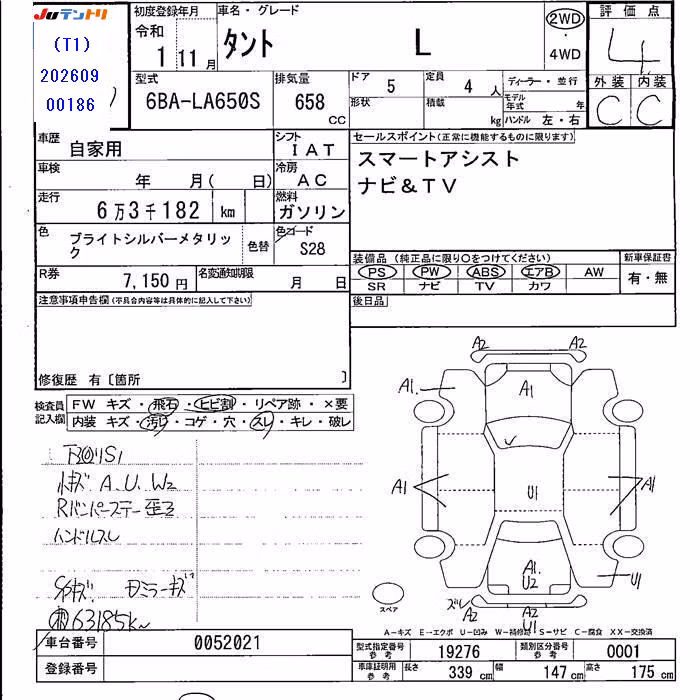 Juテントリ
(T1)
202609
00186
初度登録年月
令和
1 11月
車名・グレード
タント L
2WD
・
4WD
評価点
4
外装 内装
C C
型式
6BA-LA650S
排気量
658 CC
ドア
5
定員
4 人
形状
積載
kg
ディーラー・並行
モデル年式 年
ハンドル 左・右
車歴
自家用
シフト
IAT
車検
年 月( 日)
冷房
AC
走行
6万3千182 km
燃料
ガソリン
色
ブライトシルバーメタリック
色替
色コード
S28
R券
7,150円
名変通知期限
月 日
セールスポイント(正常に機能するものに限ります)
スマートアシスト
ナビ&TV
装備品(純正品に限り○をつけてください)
新車保証書
PS PW ABS エアB AW
SR ナビ TV カワ
有・無
後日品
注意事項申告欄(不具合内容等は具体的に記入して下さい)
修復歴 有〔箇所 〕
検査員記入欄
FW キズ・飛石・ヒビ割・リペア跡・×要
内装 キズ・汚れ・コゲ・穴・スレ・キレ・破レ
小キズ A.U.W2
Rバンパーステー歪3
ハンドルスレ
63185k
A2 A2
A1. A1
A1 U1 A1
A1.
U2
U1
ズレ
A2 A2
U1
スペア
A-キズ E-エクボ U-凹み W-補修跡 S-サビ C-腐食 XX-交換済
車台番号
0052021
登録番号
型式指定番号 参考
19276
類別区分番号 参考
0001
車庫証明用 参考
長さ 339 cm 幅 147 cm 高さ 175 cm